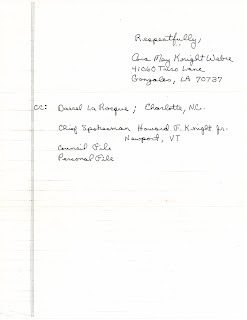 Respectfully,
Ora May Knight Webre
41060 Trico Lane
Gonzales, LA 70737
CC: Darrel La Rocque; Charlotte, NC.
Chief Spokesman Howard F. Knight Jr.
Newport, VT
Council File
Personal File